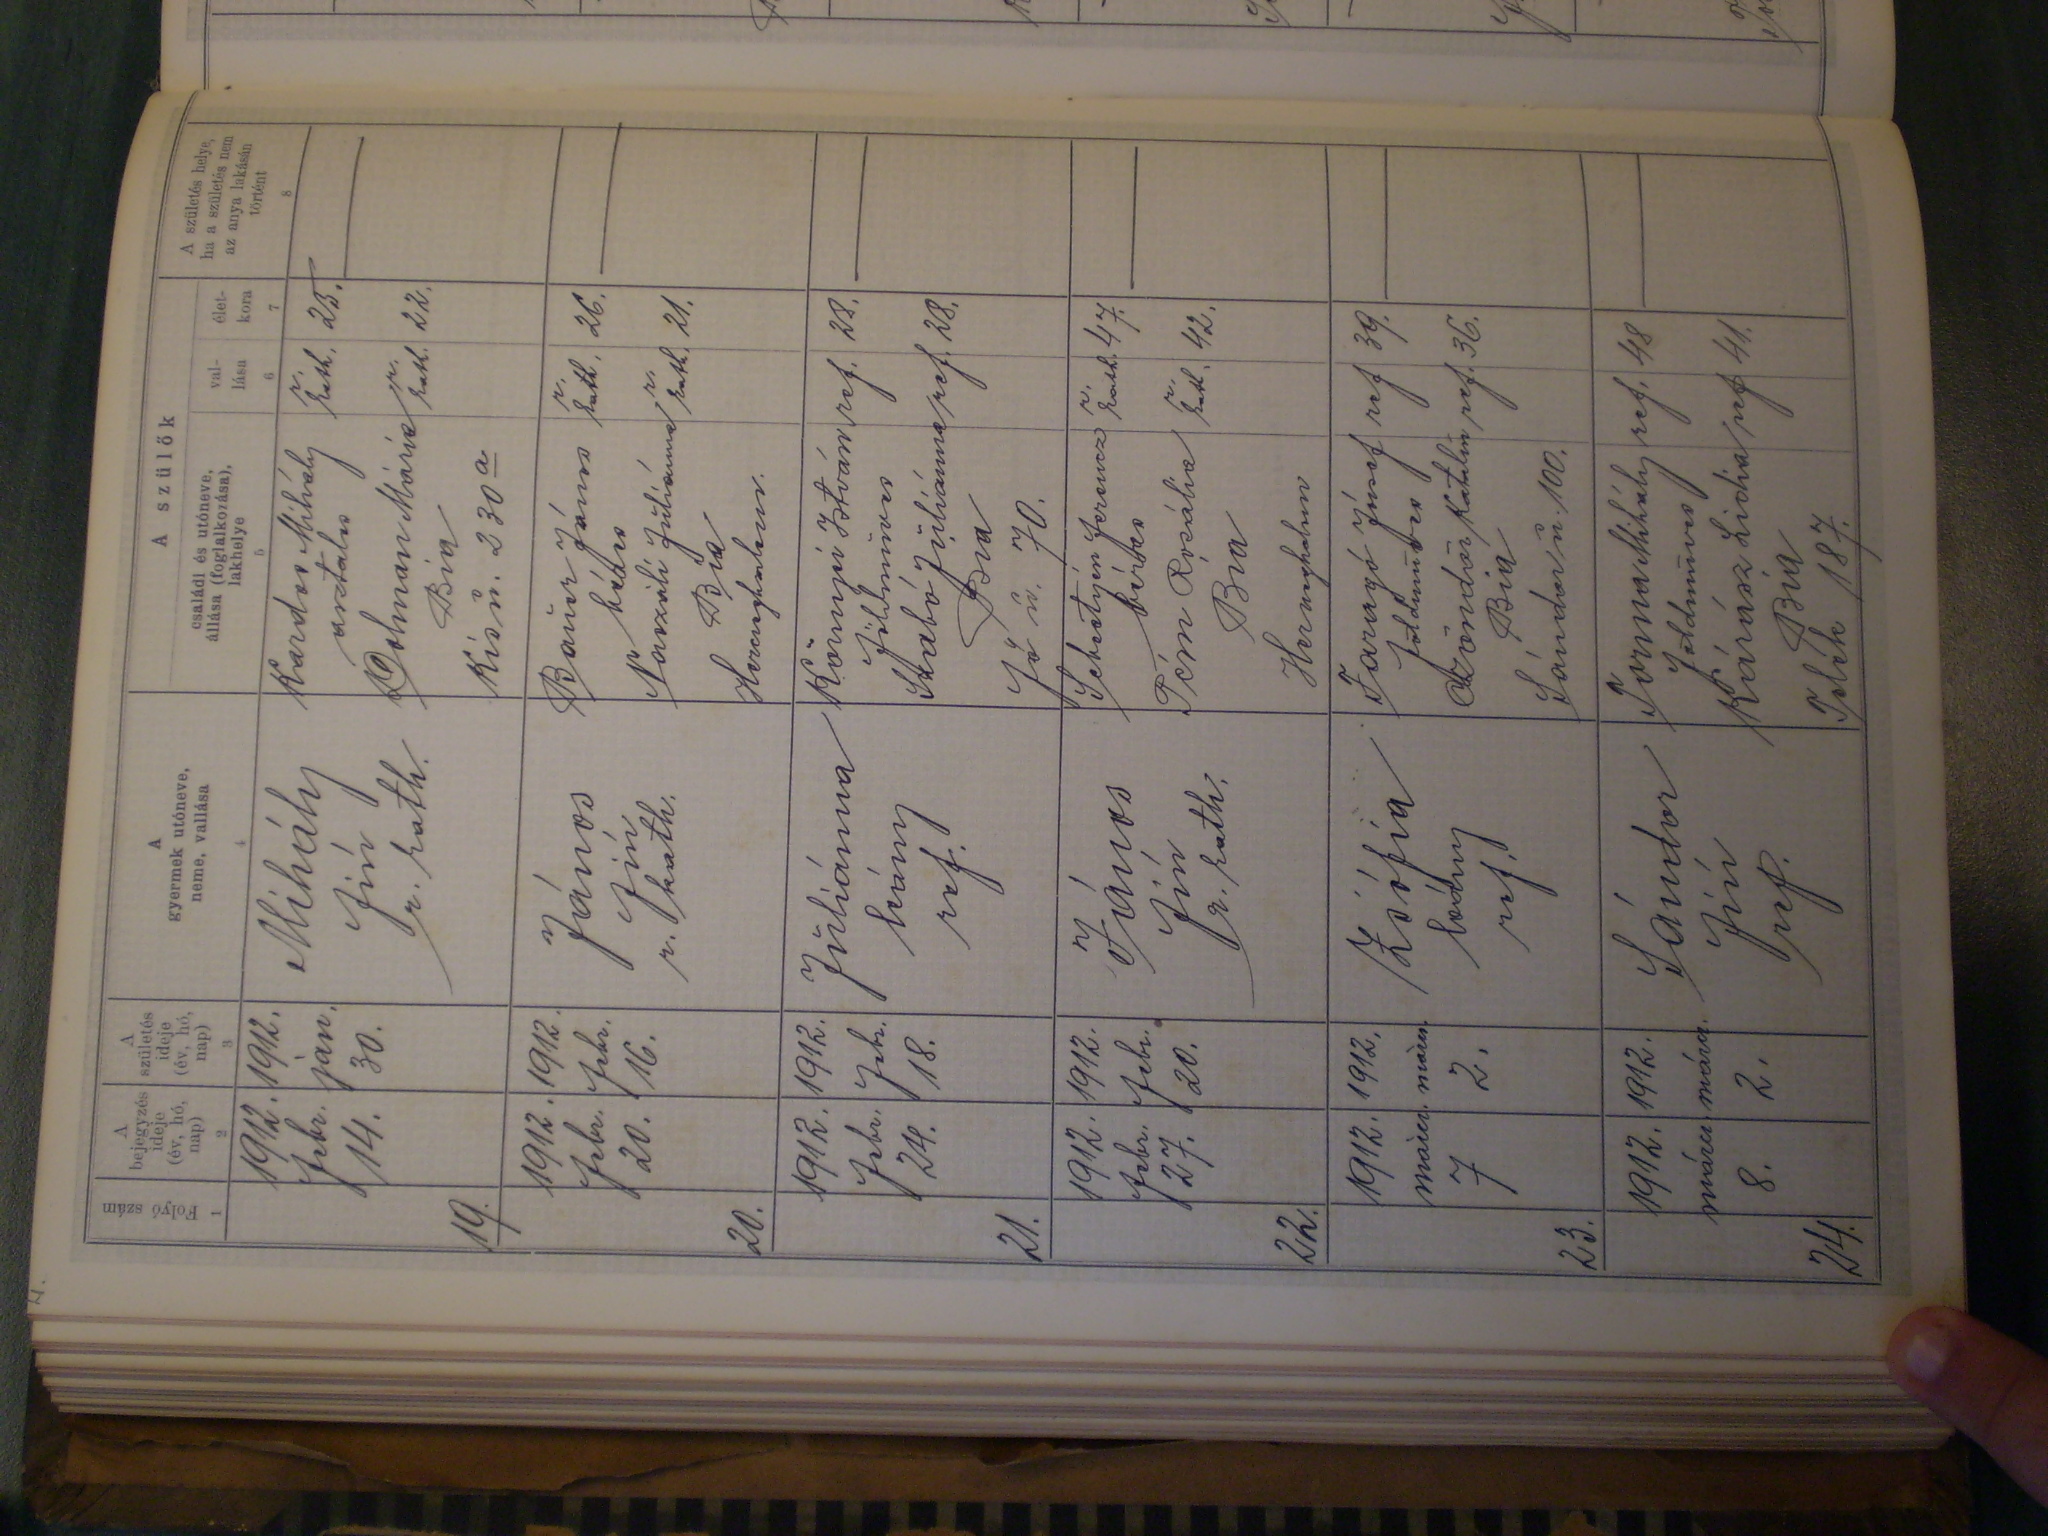 Folyó szám
1
A
bejegyzés
ideje
(év, hó,
nap)
2
A
születés
ideje
(év, hó,
nap)
3
A
gyermek utóneve,
neme, vallása
4
A szülők
családi és utóneve,
állása (foglalkozása),
lakhelye
5
val-
lása
6
élet-
kora
7
A születés helye,
ha a születés nem
az anya lakásán
történt
8
19.
1912.
febr.
14.
1912.
jan.
30.
Mihály
fiú
r. kath.
Kardos Mihály
asztalos
Dohman Mária
Bia
Kis u. 230 a
r.
kath.
r.
kath.
25.
22.
20.
1912.
febr.
20.
1912.
febr.
16.
János
fiú
r. kath.
Bauer János
béres
Juliánna
Bia
Herczeghalom.
r.
kath.
r.
kath.
26.
21.
21.
1912.
febr.
24.
1912.
febr.
18.
Juliánna
leány
ref.
Környei István
földmüves
Szabó Juliánna
Bia
Fő u. 70.
ref.
ref.
28.
28.
22.
1912.
febr.
27.
1912.
febr.
20.
János
fiú
r. kath.
Sebestyén Ferencz
béres
Rozália
Bia
r.
kath.
r.
kath.
47.
42.
23.
1912.
márcz.
7
1912.
márcz.
2.
Zsófia
leány
ref.
Faragó József
földmüves
Szöndör Katalin
Bia
Sándor u. 100.
ref
ref.
39.
36.
24.
1912.
márcz.
8.
1912.
márcz.
2.
Sándor
fiú
ref.
Torma Mihály
földmüves
Kárász Lidia
Bia
Telek 187.
ref.
ref
48
41.